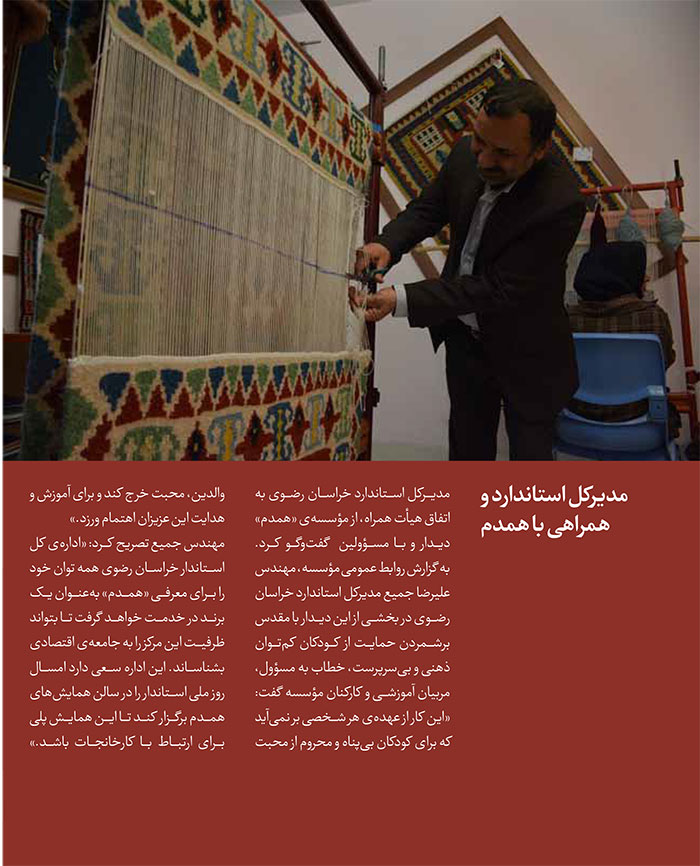 مدیرکل استاندارد و
همراهی با همدم
مدیرکل استاندارد خراسان رضوی به
اتفاق هیأت همراه، از مؤسسه‌ی «همدم»
دیدار و با مسؤولین گفت‌وگو کرد.
به گزارش روابط عمومی مؤسسه، مهندس
علیرضا جمیع مدیرکل استاندارد خراسان
رضوی در بخشی از این دیدار با مقدس
برشمردن حمایت از کودکان کم‌توان
ذهنی و بی‌سرپرست، خطاب به مسؤول،
مربیان آموزشی و کارکنان مؤسسه گفت:
«این کار از عهده‌ی هر شخصی بر نمی‌آید
که برای کودکان بی‌پناه و محروم از محبت
والدین، محبت خرج کند و برای آموزش و
هدایت این عزیزان اهتمام ورزد.»
مهندس جمیع تصریح کرد: «اداره‌ی کل
استاندار خراسان رضوی همه توان خود
را برای معرفی «همدم» به‌عنوان یک
برند در خدمت خواهد گرفت تا بتواند
ظرفیت این مرکز را به جامعه‌ی اقتصادی
بشناساند. این اداره سعی دارد امسال
روز ملی استاندار را در سالن همایش‌های
همدم برگزار کند تا این همایش پلی
برای ارتباط با کارخانجات باشد.»